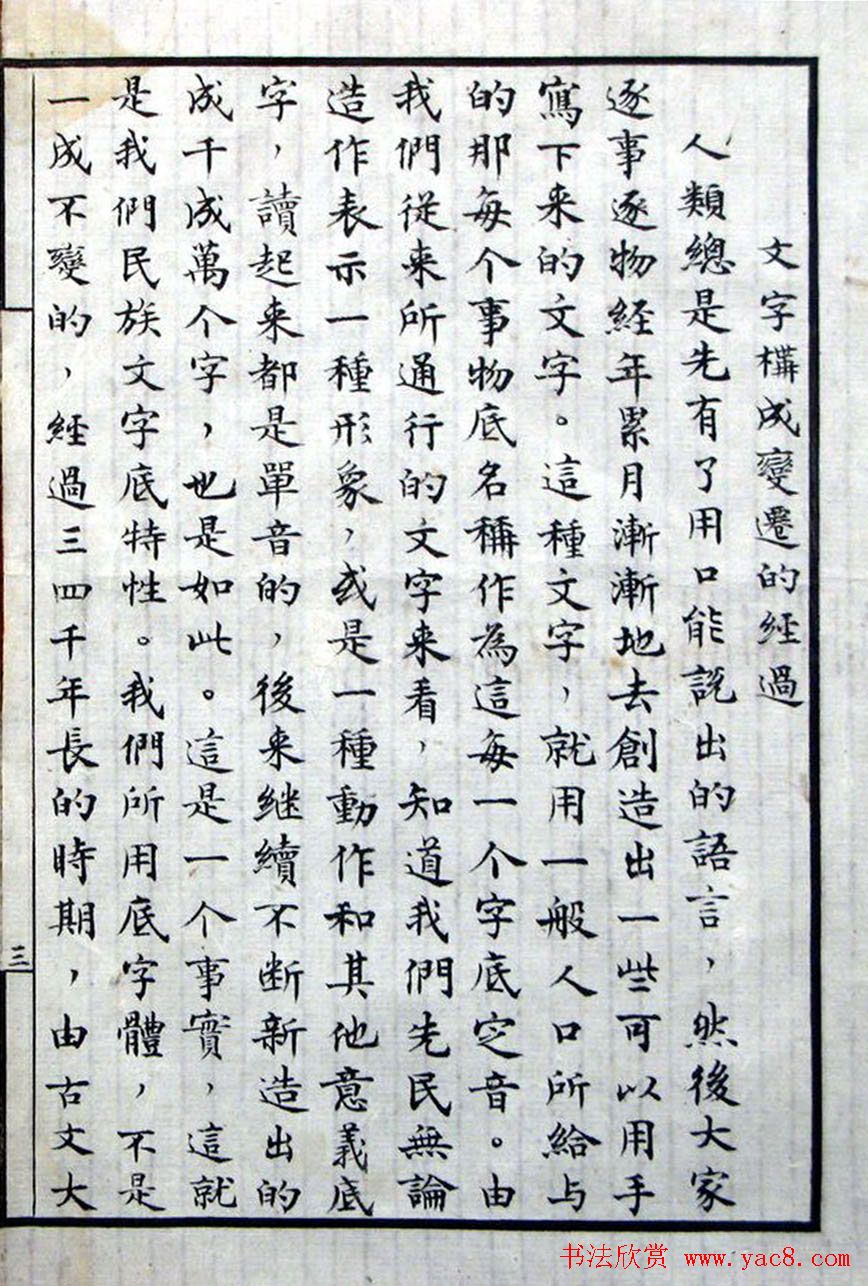 文字構成變遷的經過
人類總是先有了用口能説出的語言，然後大家
逐事逐物經年累月漸漸地去創造出一些可以用手
寫下来的文字。這種文字，就用一般人口所給与
的那每个事物底名稱作為這每一个字底定音。由
我們從来所通行的文字来看，知道我們先民無論
造作表示一種形象，或是一種動作和其他意義底
字，讀起来都是單音的，後来继續不断新造出的
成千成萬个字，也是如此。這是一个事實，這就
是我們民族文字底特性。我們所用底字體，不是
一成不變的，經過三四千年長的時期，由古文大
三
书法欣赏 www.yac8.com